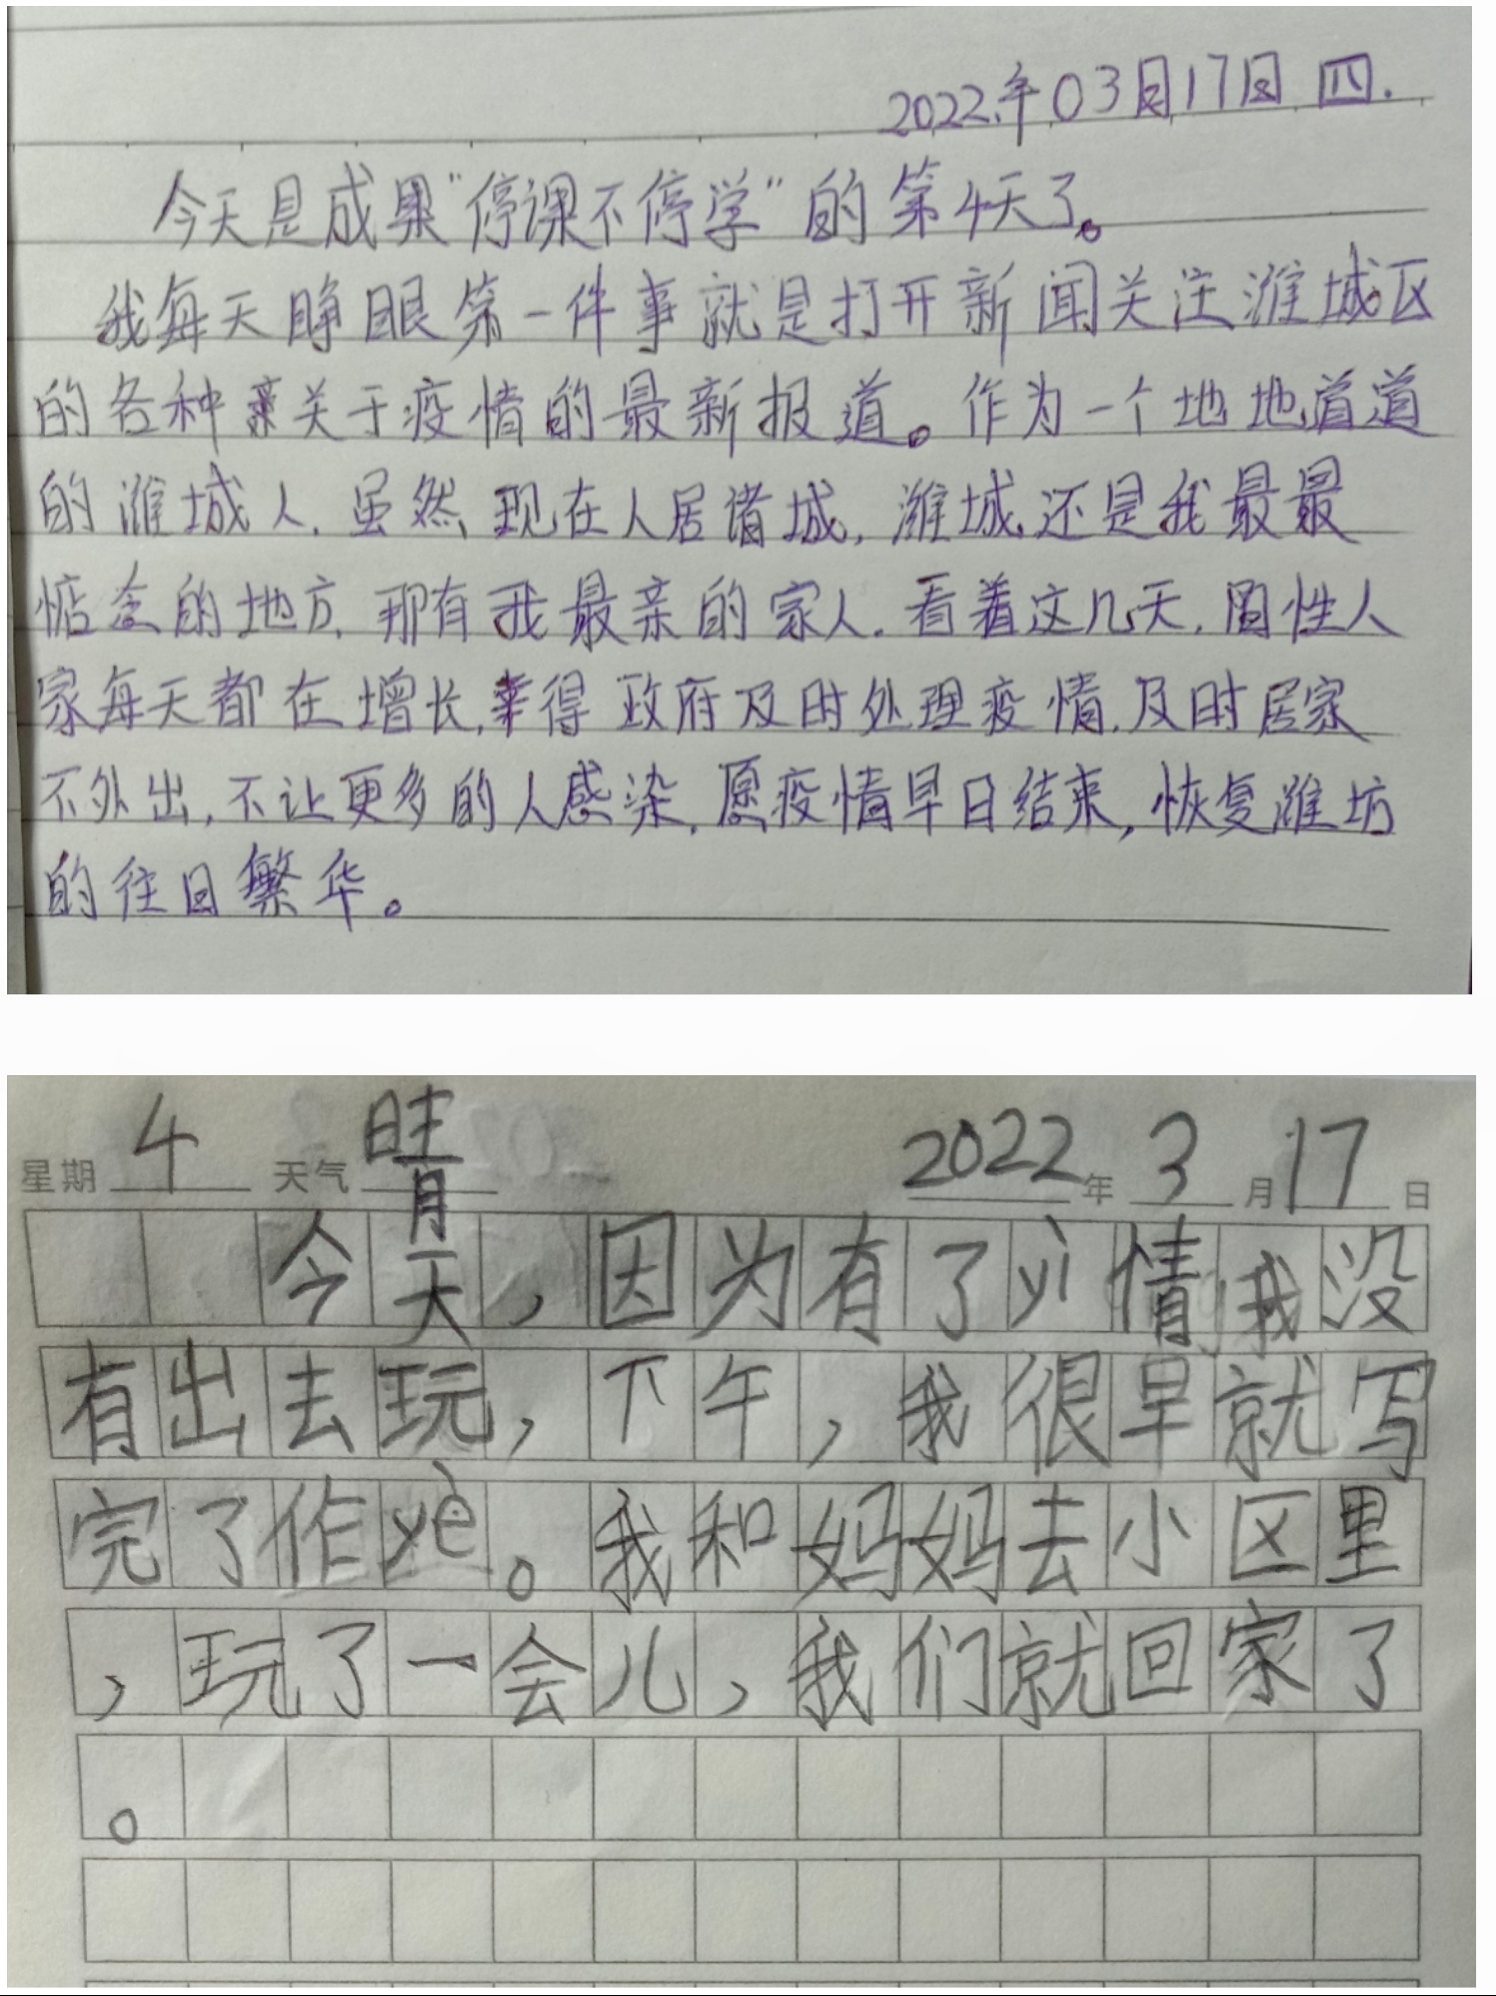 2022年03月17日 四.
今天是成果“停课不停学”的第4天了。
我每天睁眼第一件事就是打开新闻关注潍城区
的各种关于疫情的最新报道。作为一个地地道道
的潍城人,虽然现在人居诸城,潍城还是我最最
惦念的地方,那有我最亲的家人.看着这几天,阳性人
家每天都在增长,幸得政府及时处理疫情,及时居家
不外出,不让更多的人感染,愿疫情早日结束,恢复潍坊
的往日繁华。
星期 4 天气 晴 2022年 3月17日
今天,因为有了yì情我没
有出去玩,下午,我很早就写
完了作yè。我和妈妈去小区里
,玩了一会儿,我们就回家了
。